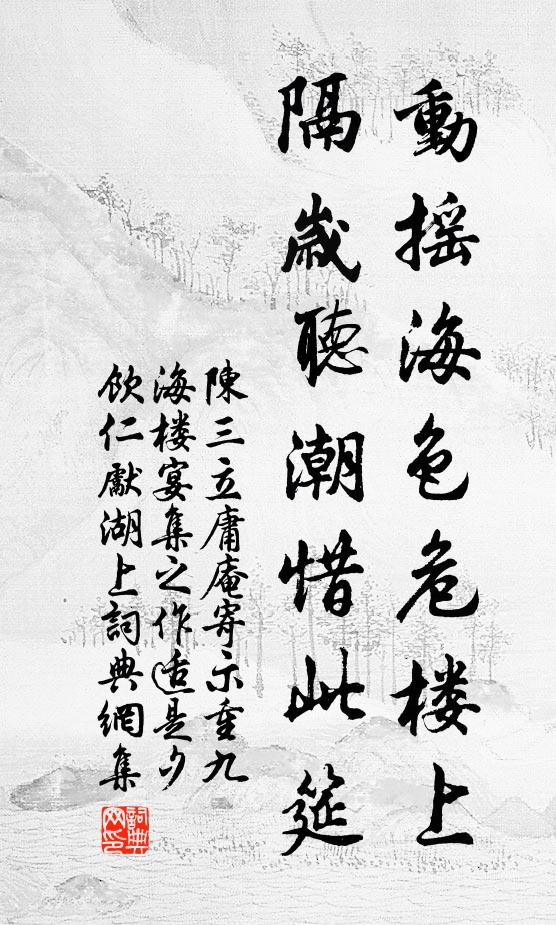 動摇海色危楼上
隔歲聽潮惜此筵
陳三立庸庵寄示重九
海楼宴集之作适是夕
飲仁獻湖上詞典網集
詞典
网印